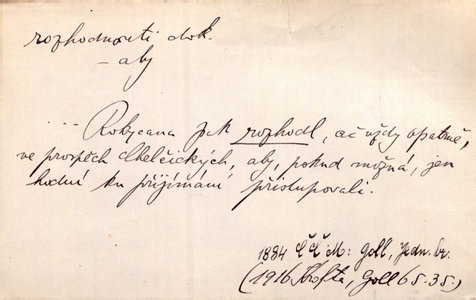 rozhodnouti dok.
– aby
.... Rokycana pak rozhodl, ač vždy opatrně,
ve prospěch chelčických, aby, pokud možná, jen
hodní ku přijímání přistupovali.
1884 ČČM: Goll, Jedn. br.
(1916 Krofta, Goll 65.35)